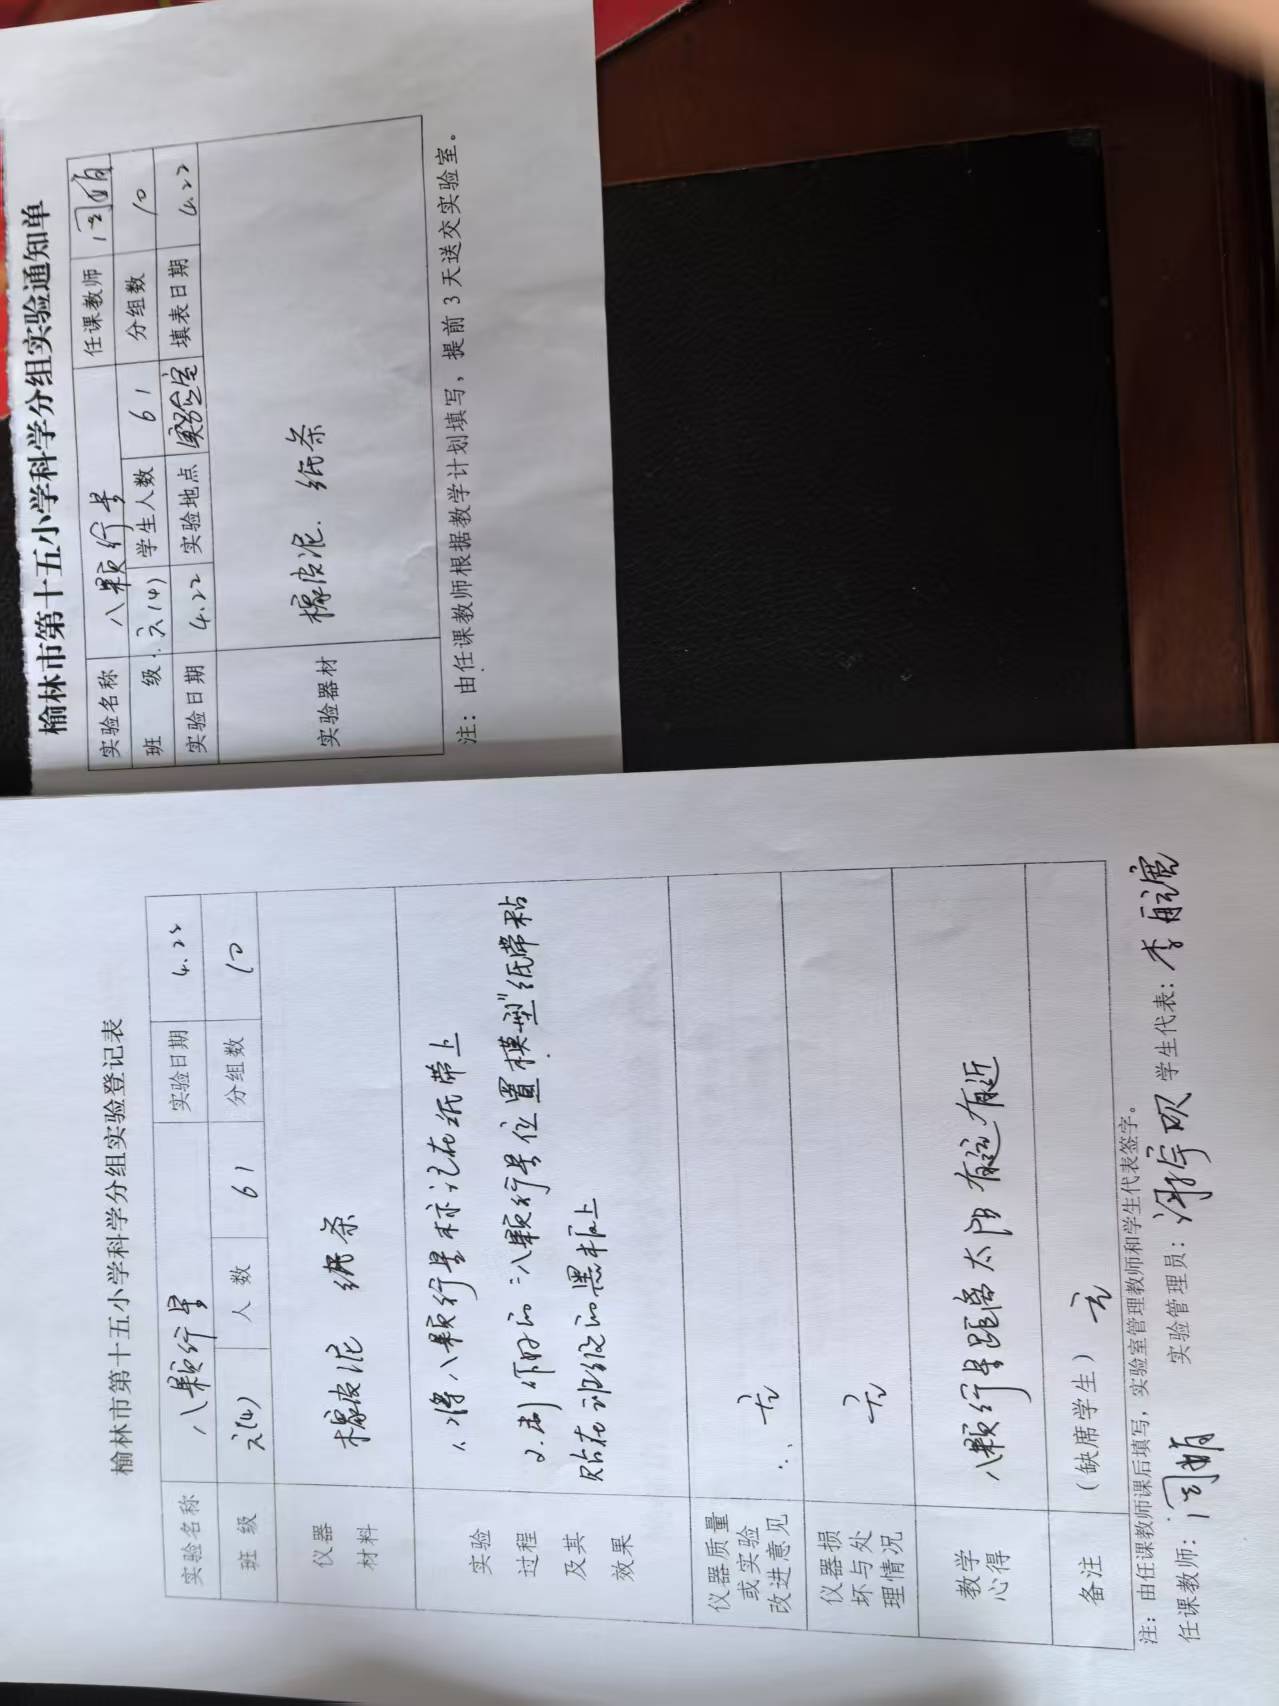 榆林市第十五小学科学分组实验通知单
实验名称 八颗行星 任课教师 闫娟
班 级 六(4) 学生人数 61 分组数 10
实验日期 4.22 实验地点 实验室 填表日期 4.22
实验器材 橡皮泥. 纸条
注：由任课教师根据教学计划填写，提前3天送交实验室。
榆林市第十五小学科学分组实验登记表
实验名称 八颗行星 实验日期
班 级 六(4) 人 数 61 分组数 10
仪器
材料
橡皮泥 纸条
实验
过程
及其
效果
1.将八颗行星标记在纸带上
2.制作好的"八颗行星位置模型"纸带粘
贴在班级的黑板上
仪器质量
或实验
改进意见
无
仪器损
坏与处
理情况
无
教学
心得
八颗行星距离太阳有远有近
备注 (缺席学生) 无
注：由任课教师课后填写，实验室管理教师和学生代表签字。
任课教师： 实验管理员： 学生代表：